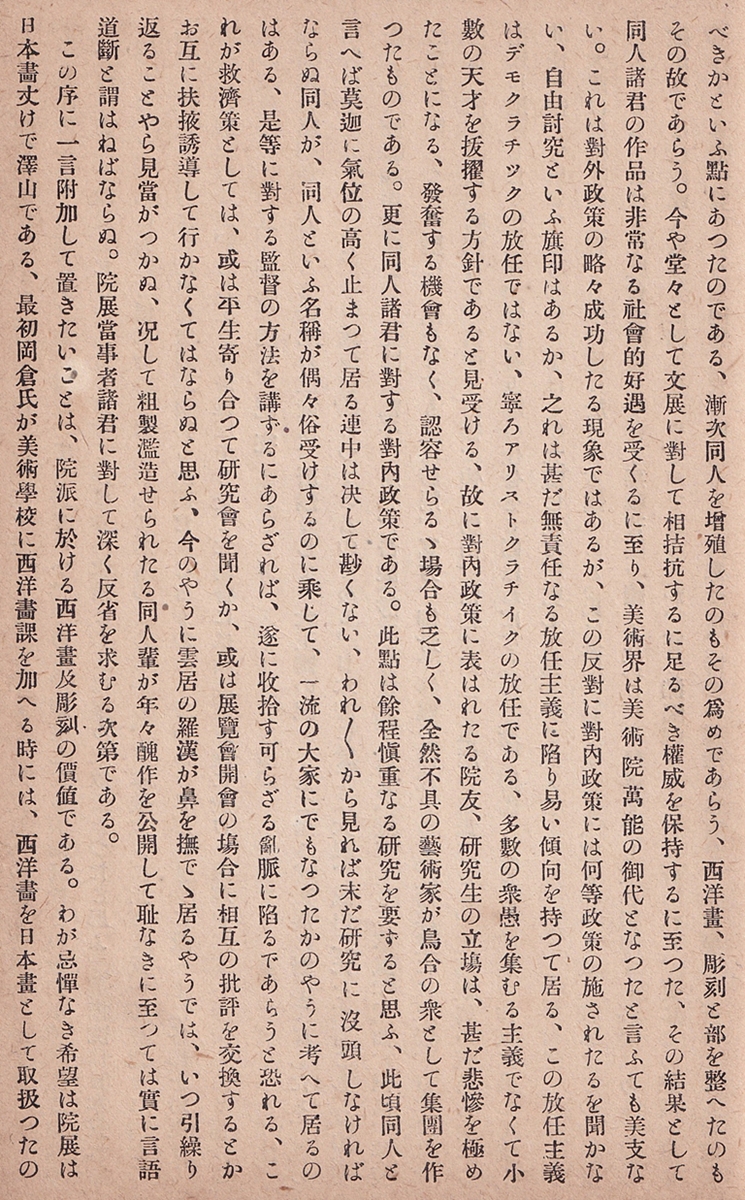 べきかといふ點にあつたのである、漸次同人を增殖したのもその爲めであらう、西洋畫、彫刻と部を整へたのも
その故であらう。今や堂々として文展に對して相拮抗するに足るべき權威を保持するに至つた、その結果として
同人諸君の作品は非常なる社會的好遇を受くるに至り、美術界は美術院萬能の御代となつたと言ふても美支な
い。これは對外政策の略々成功したる現象ではあるが、この反對に對內政策には何等政策の施されたるを聞かな
い、自由討究といふ旗印はあるか、之れは甚だ無責任なる放任主義に陷り易い傾向を持つて居る、この放任主義
はデモクラチツクの放任ではない、寧ろアリストクラチイクの放任である、多數の衆愚を集むる主義でなくて小
數の天才を拔擢する方針であると見受ける、故に對內政策に表はれたる院友、硏究生の立塲は、甚だ悲慘を極め
たことになる、發奮する機會もなく、認容せらるゝ塲合も乏しく、全然不具の藝術家が烏合の衆として集團を作
つたものである。更に同人諸君に對する對內政策である。此點は餘程愼重なる硏究を要すると思ふ、此頃同人と
言へば莫迦に氣位の高く止まつて居る連中は决して尠くない、われ〱から見れば末だ硏究に沒頭しなければ
ならぬ同人が、同人といふ名稱が偶々俗受けするのに乘じて、一流の大家にでもなつたかのやうに考へて居るの
はある、是等に對する監督の方法を講ずるにあらざれば、遂に收拾す可らざる亂脈に陷るであらうと恐れる、こ
れが救濟策としては、或は平生寄り合つて硏究會を聞くか、或は展覽會開會の塲合に相互の批評を交換するとか
お互に扶掖誘導して行かなくてはならぬと思ふ、今のやうに雲居の羅漢が鼻を撫でゝ居るやうでは、いつ引繰り
返ることやら見當がつかぬ、况して粗製濫造せられたる同人輩が年々醜作を公開して耻なきに至つては實に言語
道斷と謂はねばならぬ。院展當事者諸君に對して深く反省を求むる次第である。
この序に一言附加して置きたいことは、院派に於ける西洋畫及彫刻の價値である。わが忌憚なき希望は院展は
日本畫丈けで澤山である、最初岡倉氏が美術學校に西洋畫課を加へる時には、西洋畫を日本畫として取扱つたの